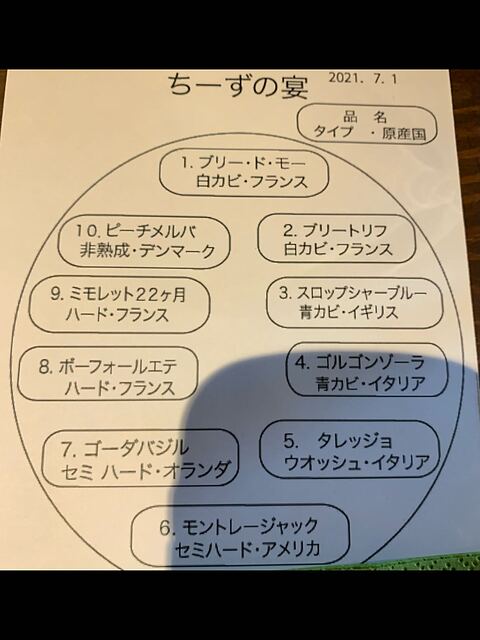 ちーずの宴
2021. 7. 1
品 名
タイプ ・原産国
1. ブリー・ド・モー
白カビ・フランス
10. ピーチメルバ
非熟成・デンマーク
2. ブリートリフ
白カビ・フランス
9. ミモレット22ヶ月
ハード・フランス
3. スロップシャーブルー
青カビ・イギリス
8. ボーフォールエテ
ハード・フランス
4. ゴルゴンゾーラ
青カビ・イタリア
7. ゴーダバジル
セミ ハード・オランダ
5. タレッジョ
ウオッシュ・イタリア
6. モントレージャック
セミハード・アメリカ